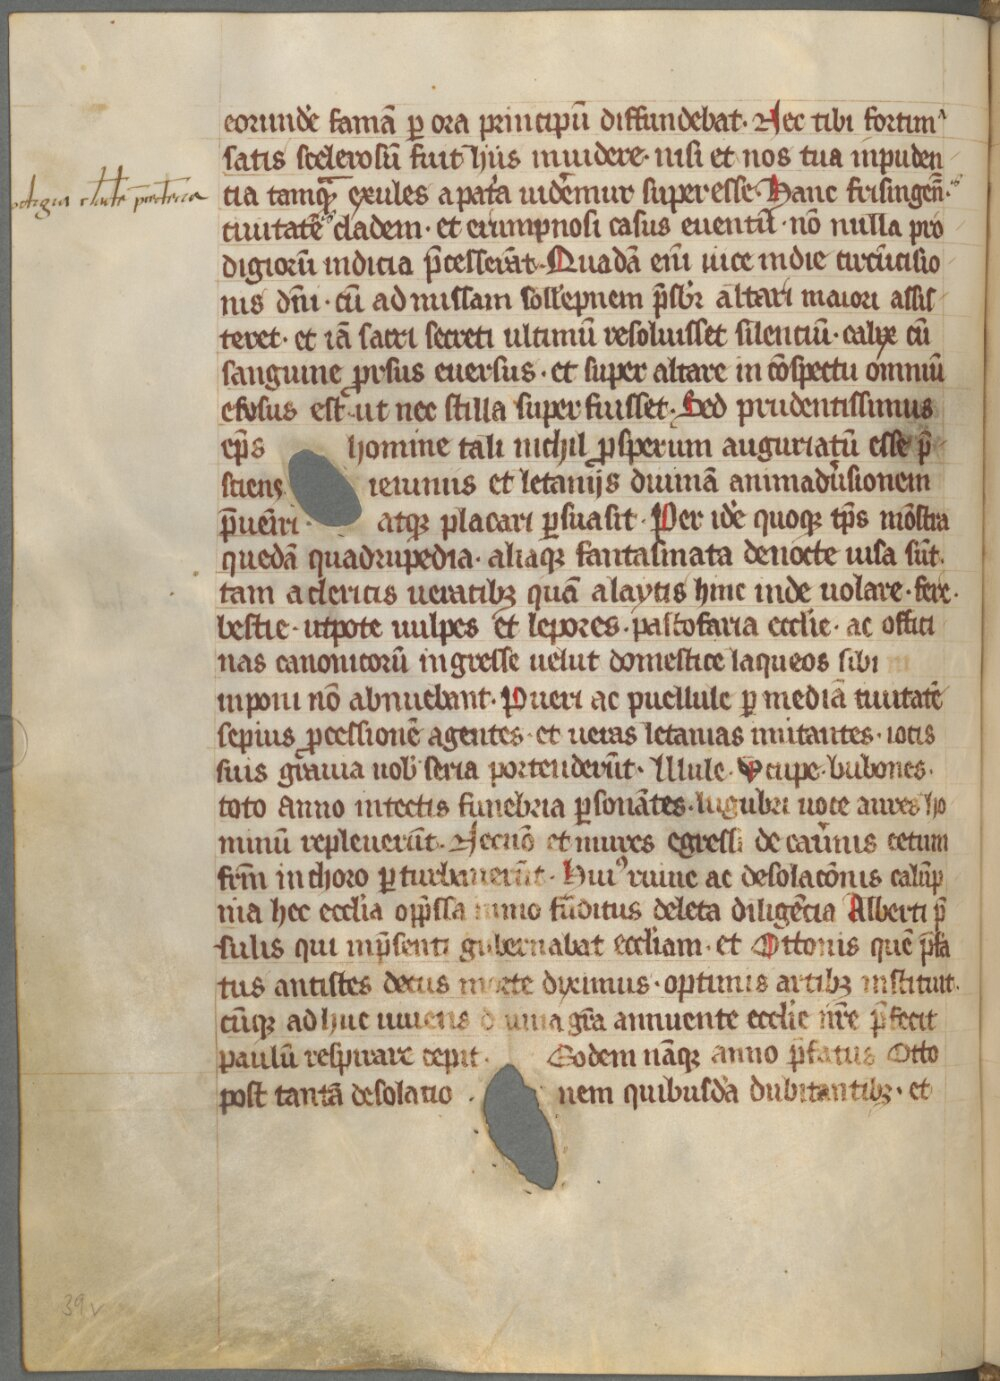 eorundē famā ꝑ ora principū diffundebat· Nec tibi fortim
satis scelerosū fuit hiis inuidere· nisi et nos tua inpuden
tia tamqꝫ exules a pat͛a uidem͛ur superesse· Hanc frisingen̄
ciuitatē cladem· et erumpnosi casus euentū· nō nulla pro
digiorū indicia p̄cesserāt· Quadā enī uice in die circūcisio
nis dn̄i· cū ad missam sollepnem p̄sbr̄ altari maiori assis
teret· et iā sacri secreti ultimū resoluisset silenciū· calix cū
sanguine ꝓrsus euersus· et super altare in cōspectu omniū
efusus est· ut nec stilla superfuisset· Sed prudentissimus
ep̄s homine tali nichil ꝓsperum auguriatū esse p̄
sciens ieiuniis et letaniis diuinā animadu͛sionem
p̄uenīri· atqꝫ placari ꝑsuasit· Per idē quoqꝫ tp̄s mōstra
quedā quadrupedia· aliaqꝫ fantasmata de nocte uisa sūt·
tam a clericis ueratibꝫ quā a laytis hinc inde uolare· fere·
bestie· utpote uulpes et lepores· pastofaria eccl̄ie· ac offici
nas canonicorū ingresse uelut domestice laqueos sibi
inponi nō abnuebant· Pueri ac puellule ꝑ mediā ciuitatē
sepius ꝓcessionē agentes· et ueras letanias imitantes· iocis
suis grauia nob̄ seria portenderūt· Ulule· Vpupe· bubones·
toto anno in tectis funebria ꝑsonātes· lugubri uoce aures ho
minū repleuerūt· Necnō et mures egressi de cau͛nis cetum
fr̄m in choro ꝑturbauerūt· Huiꝰ ruine ac desolacōnis calūp
nia hec eccl̄ia opp̄ssa immo fūditus deleta diligēcia Alberti p̄
sulis qui inp̄senti gubernabat eccl̄iam· et Ottonis quē p̄fa
tus antistes decus morte diximus· optimis artibꝫ instituit·
cūqꝫ adhuc uiuens diuina gr̄a annuente eccl̄ie nr̄e p̄fecit
paulū respirare cepit· Eodem nāqꝫ anno p̄fatus Otto
post tantā desolatio nem quibusdā dubitantibꝫ· et
39v